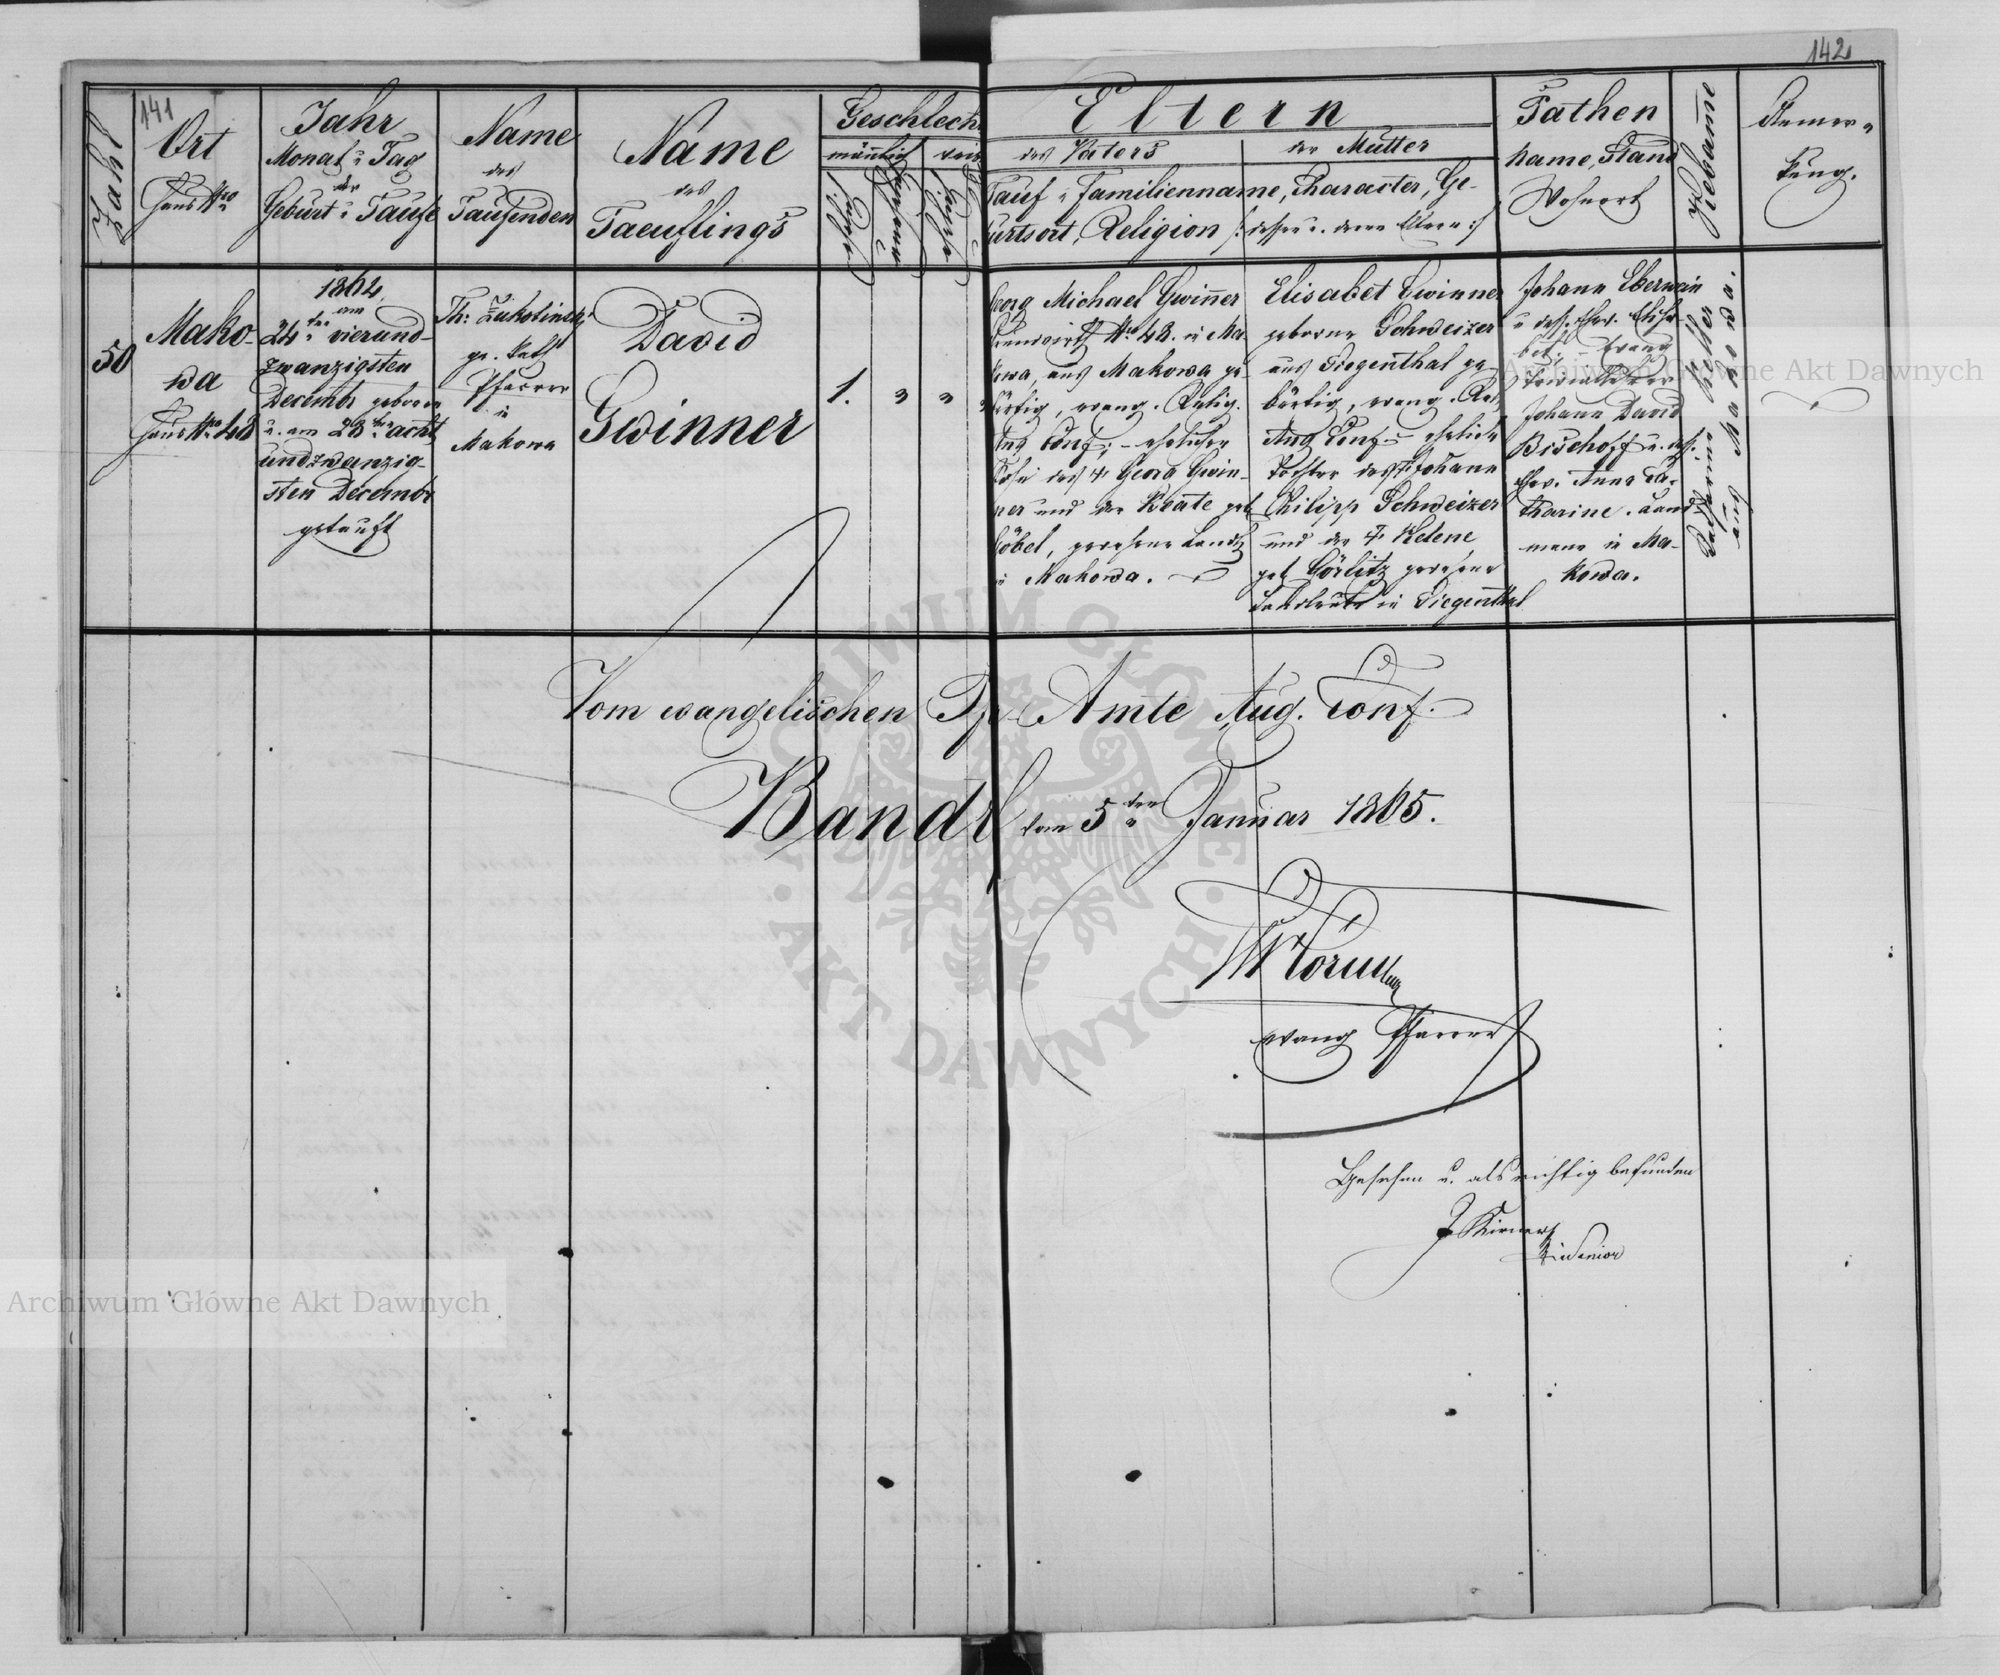 141
142
Zahl
Ort
Haus Nro
Jahr
Monat u. Tag
der
Geburt u. Taufe
Name
des
Taufenden
Name
des
Taeuflings
Geschlech
männlich
weib
Eltern
des Vaters
der Mutter
Tauf u. Familienname, Character, Ge-
urtsort, Religion /: dessen u. deren Eltern :/
Pathen
name, Stand
Wohnort
Hebamme
Anmer-
kung.
50
Mako-
wa
Haus Nro 48
1864
am
24ten vierund-
zwanzigsten
Decembr geboren
u. am 28ten acht
undzwanzig-
sten Decembr
getauft
Th: Zukolinski
gr. kath
Pfarrer
in
Makowa
David
Gwinner
1. " "
eorg Michael Gwinner
Nro 48. in Ma-
kowa, aus Makowa ge-
bürtig, evang. Relig.
Aug Conf; – ehelicher
Sohn des † Georg Gwin-
ner und der Beate geb
öbel, gewesene Landl
in Makowa.
Elisabet Gwinner
geborne Schweizer
aus Siegenthal ge-
bürtig, evang. Rel
Aug Conf – eheliche
Tochter des † Johann
Philipp Schweizer
und der † Helene
geb Görlitz gewesene
Landleute in Siegenthal
Johann Eberwein
u. dess. Ehew. Elisa-
bet, – evang
Johann David
Bischoff u. dess.
Ehew. Anna Ca-
tharine. Land-
mann in Ma-
kowa.
Catharina Keller
aus Makowa.
Vom evangelischen Pf Amte Aug. Conf.
Bandr vom 5ten Januar 1865.
evang Pfarrer
Gesehen u. als richtig befunden
Senior
Archiwum Główne Akt Dawnych
Archiwum Główne Akt Dawnych
ARCHIWUM GŁÓWNE · AKT DAWNYCH ·